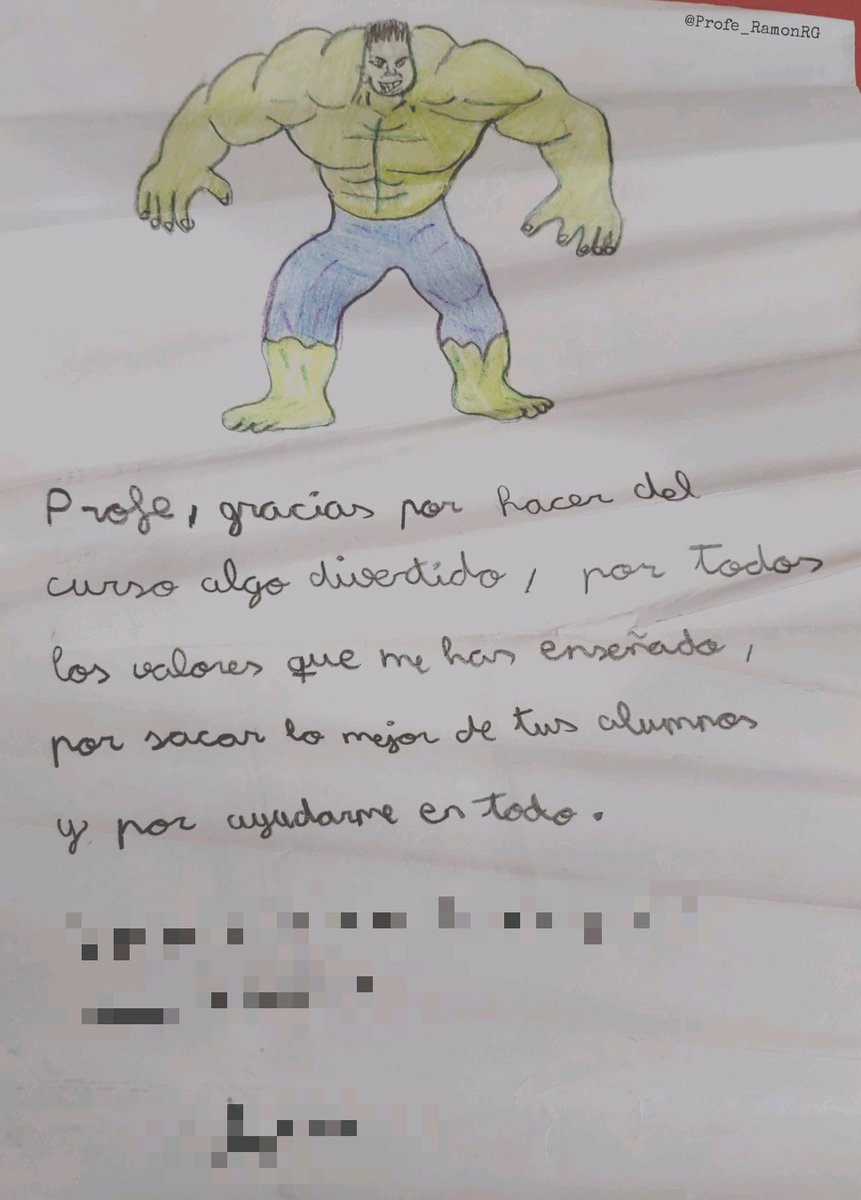 @Profe_RamonRG
Profe, gracias por hacer del
curso algo divertido, por todos
los valores que me has enseñado,
por sacar lo mejor de tus alumnos
y por ayudarme en todo.